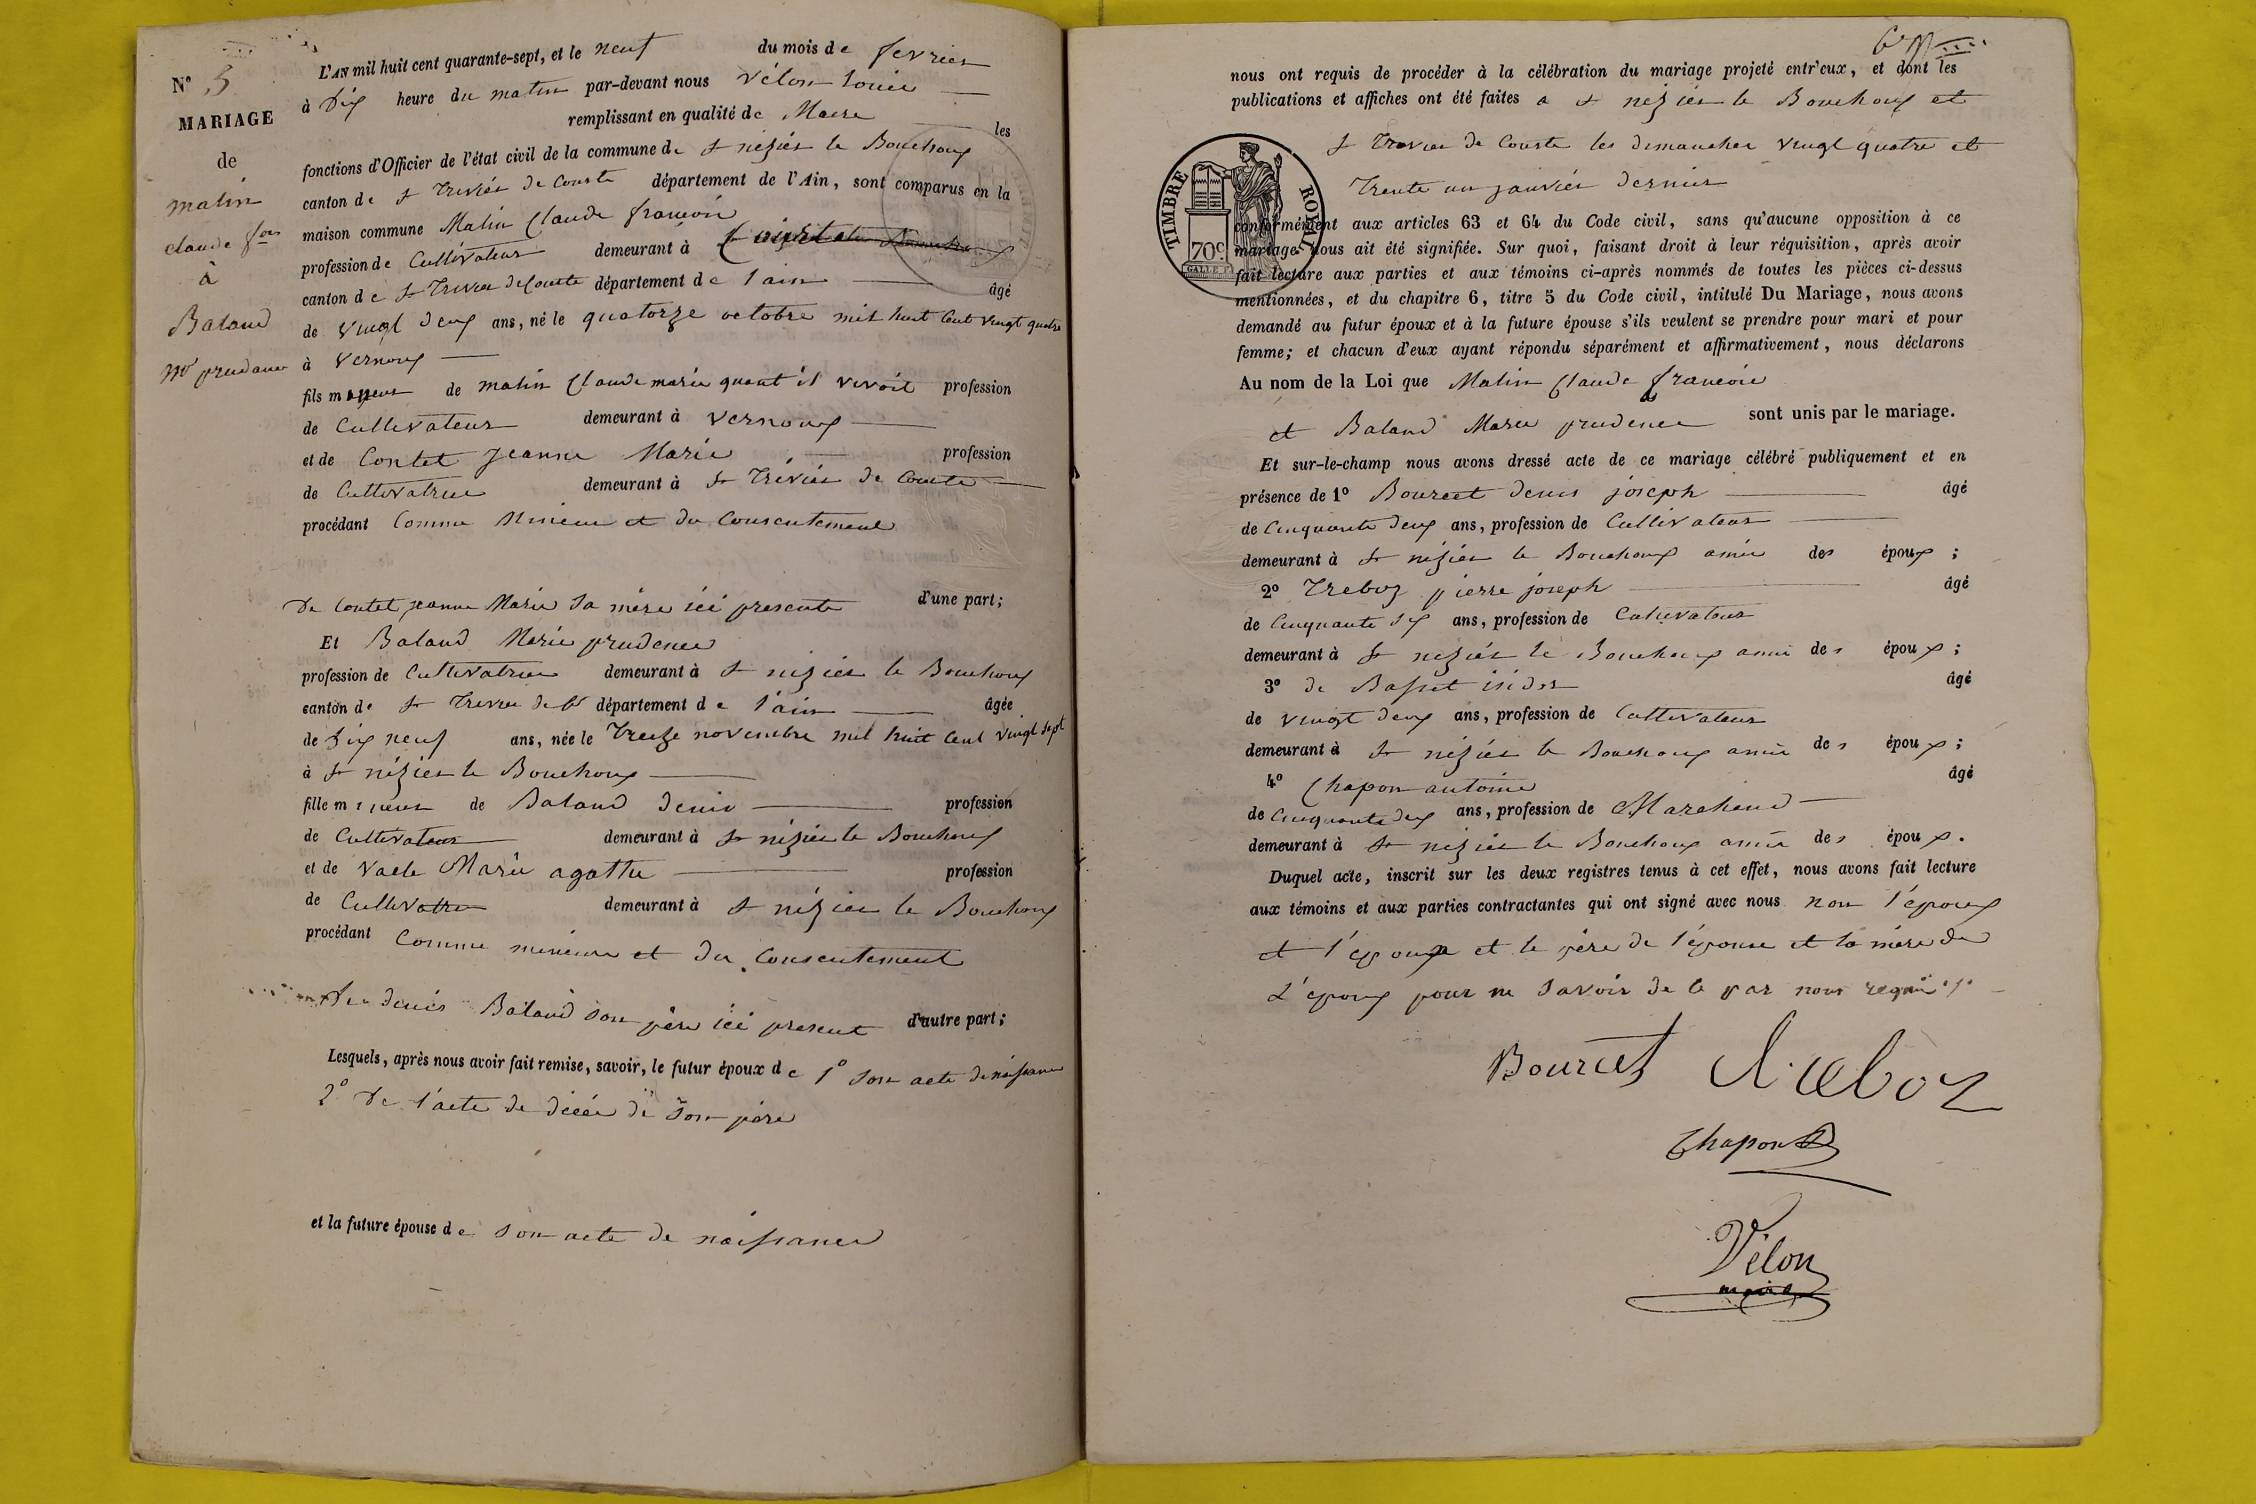 N° 5
MARIAGE
de
malin
claude fois
à
Baland
Mie prudence
L'AN mil huit cent quarante-sept, et le neuf du mois de fevrier
à Dix heure du matin par-devant nous Vélon Louis
remplissant en qualité de Maire les
fonctions d'Officier de l'état civil de la commune de St nizier le Bouchoux
canton de St Trivier de Courte département de l'Ain, sont comparus en la
maison commune Malin Claude françois
profession de Cultivateur demeurant à
canton de St Trivier de Courte département de l'ain âgé
de vingt deux ans, né le quatorze octobre mil huit Cent vingt quatre
à Vernoux
fils mineur de malin Claude marie quant il vivoit profession
de Cultivateur demeurant à Vernoux
et de Contet Jeanne Marie profession
de Cultivatrice demeurant à St Trivier de Courte
procédant Comme Mineur et du Consentement
De Contet jeanne Marie Sa mère ici presente d'une part;
Et Baland Marie prudence
profession de Cultivatrice demeurant à St nizier le Bouchoux
canton de St Trivier de Ct département de l'ain âgée
de Dix neuf ans, née le Treize novembre mil huit Cent vingt sept
à St nizier le Bouchoux
fille mineur de Baland Denis profession
de Cultivateur demeurant à St nizier le Bouchoux
et de Vacle Marie agathe profession
de Cultivatrice demeurant à St nizier le Bouchoux
procédant Comme mineure et du Consentement
De denis Baland son père ici present d'autre part;
Lesquels, après nous avoir fait remise, savoir, le futur époux de 1° Son acte de naissance
2° De l'acte de décée de Son père
et la future épouse de Son acte de naissance
nous ont requis de procéder à la célébration du mariage projeté entr'eux, et dont les
publications et affiches ont été faites a St nizier le Bouchoux et
St Trivier de Courte les dimanches vingt quatre et
Trente un janvier dernier
TIMBRE ROYAL
70c
conformément aux articles 63 et 64 du Code civil, sans qu'aucune opposition à ce
mariage nous ait été signifiée. Sur quoi, faisant droit à leur réquisition, après avoir
fait lecture aux parties et aux témoins ci-après nommés de toutes les pièces ci-dessus
mentionnées, et du chapitre 6, titre 5 du Code civil, intitulé Du Mariage, nous avons
demandé au futur époux et à la future épouse s'ils veulent se prendre pour mari et pour
femme; et chacun d'eux ayant répondu séparément et affirmativement, nous déclarons
Au nom de la Loi que Malin Claude françois
et Baland Marie prudence sont unis par le mariage.
Et sur-le-champ nous avons dressé acte de ce mariage célébré publiquement et en
présence de 1° Bourcet denis joseph âgé
de Cinquante deux ans, profession de Cultivateur
demeurant à St nizier le Bouchoux amie des époux;
2° Treboz pierre joseph âgé
de Cinquante Six ans, profession de Cultivateur
demeurant à St nizier le Bouchoux amie des époux;
3° de Basset isidor âgé
de vingt deux ans, profession de Cultivateur
demeurant à St nizier le Bouchoux amie des époux;
4° Chapon antoine âgé
de Cinquante deux ans, profession de Marchand
demeurant à St nizier le Bouchoux amie des époux.
Duquel acte, inscrit sur les deux registres tenus à cet effet, nous avons fait lecture
aux témoins et aux parties contractantes qui ont signé avec nous non l'époux
et l'epouse et le père de l'épouse et la mère de
L'epoux pour ne Savoir de ce par nous requis
Bourcet Treboz
Chapon
Vélon
maire